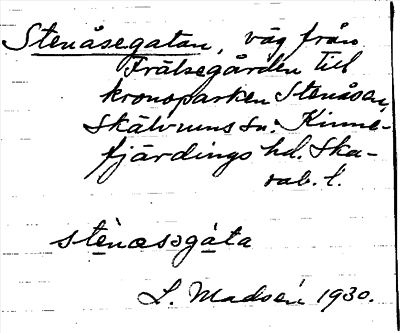 Stenåsegatan, väg från
Frälsegården till
kronoparken Stenåsen,
Skälvums sn. Kinne-
fjärdings hd. Ska-
rab. l.
stènasəgàta
L. Madsén 1930.